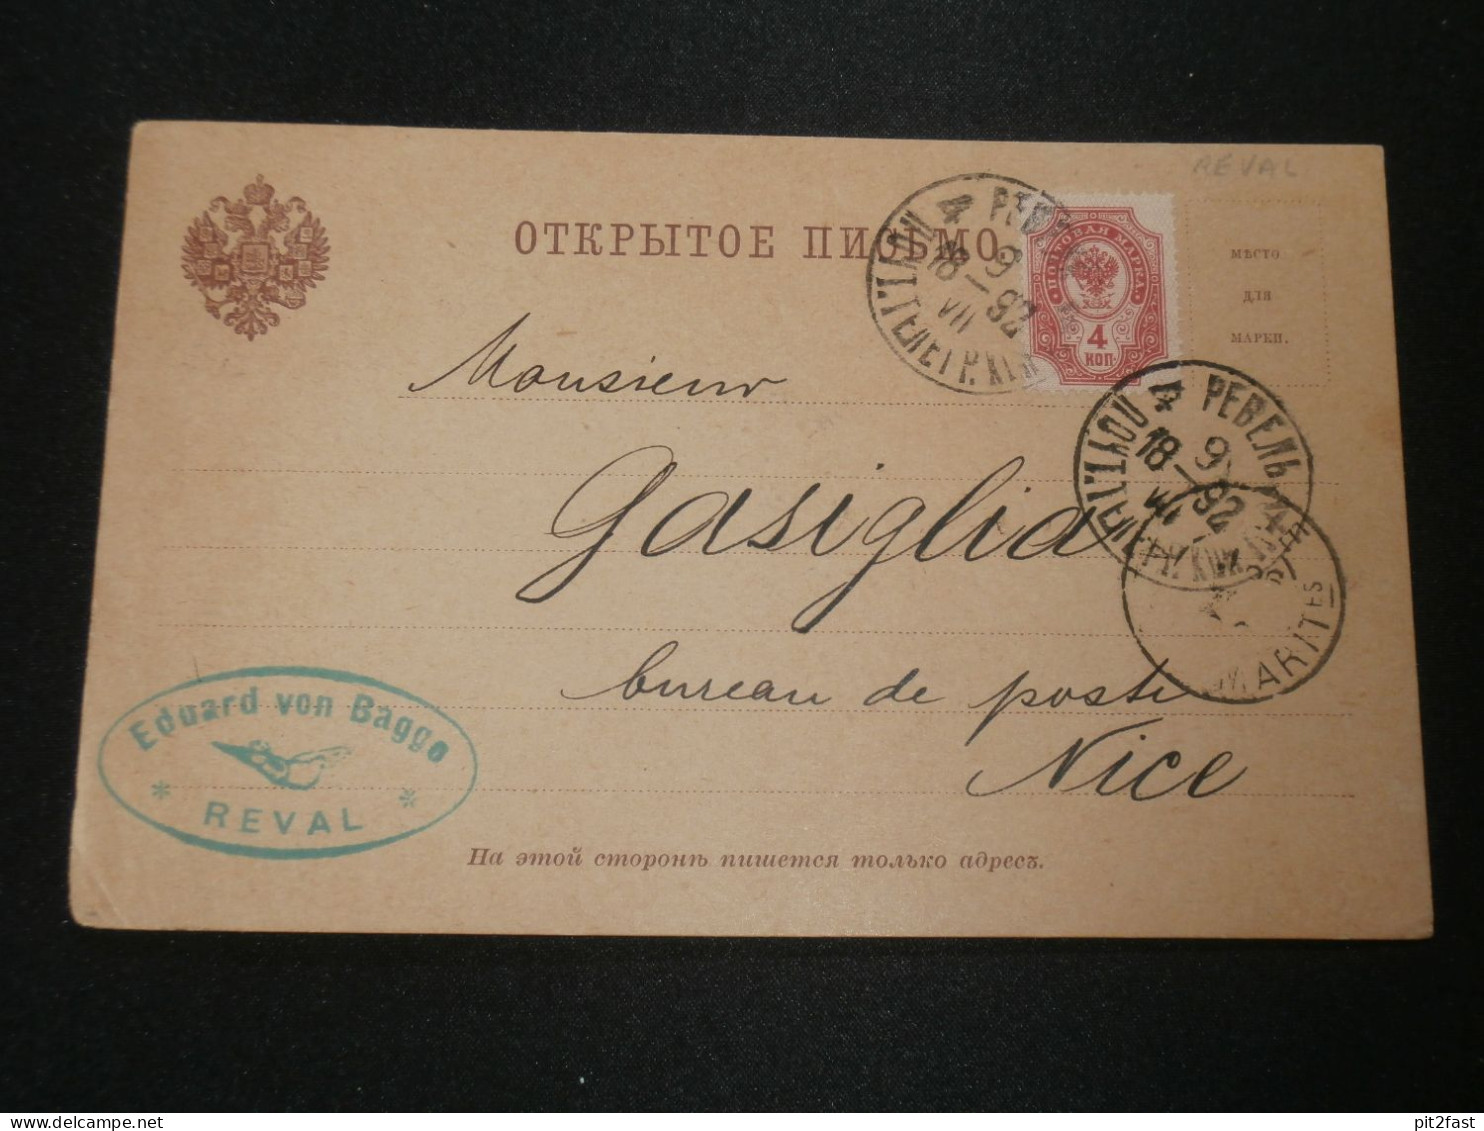 REVAL
ОТКРЫТОЕ ПИСЬМО
МѢСТО
ДЛЯ
МАРКИ.
ПОЧТОВАЯ МАРКА
4
КОП.
4 РЕВЕЛЬ
9
18 — 92
VII
4 РЕВЕЛЬ
9
18 — 92
VII
MARITES
Monsieur
Gasiglia
bureau de poste
Nice
Eduard von Baggo
* REVAL *
На этой сторонѣ пишется только адресъ.
delcampe.net
pit2fast